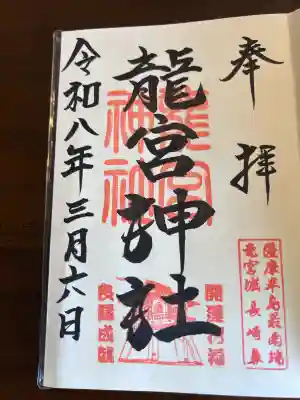 奉拝
薩摩半島最南端
竜宮窟長崎鼻
龍宮神社
龍宮
神社
開運祈願
良縁成就
令和八年三月六日